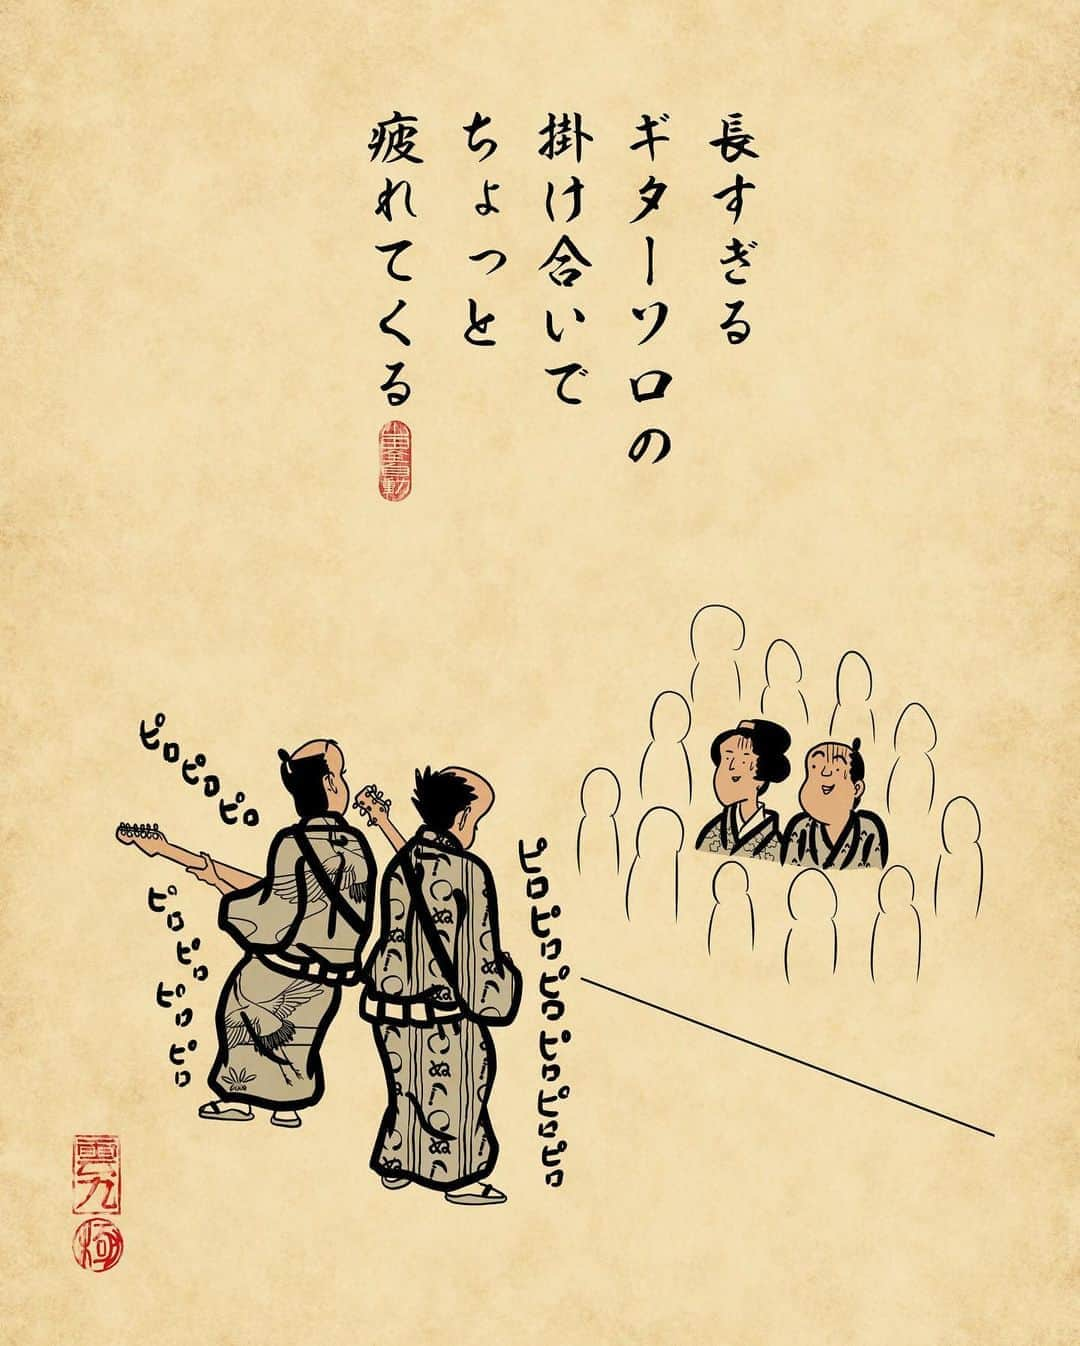 長すぎる
ギターソロの
掛け合いで
ちょっと
疲れてくる
ピロピロピロ
ピロピロピロピロ
ピロピロピロピロピロピロ
雲九
極